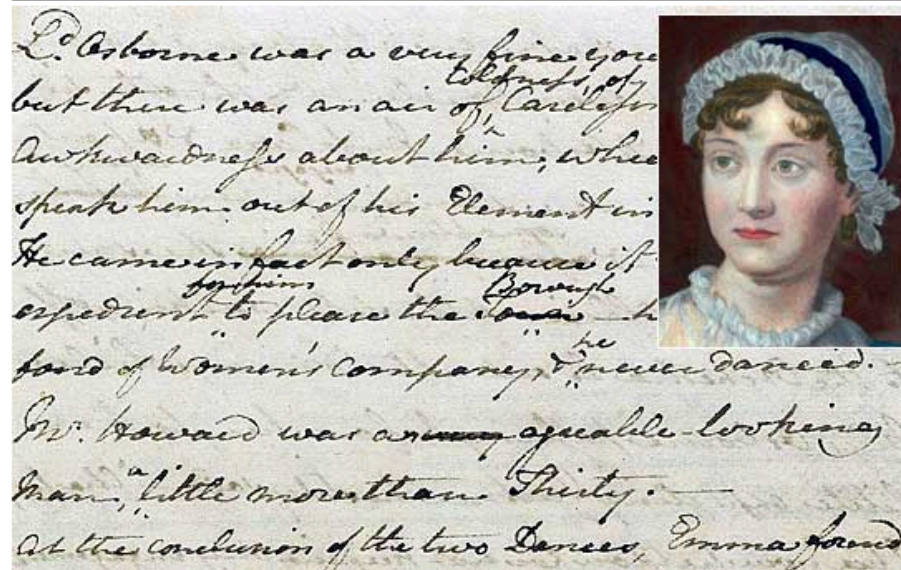 Ld. Osborne was a very fine you
coldness, of
but there was an air of, Careless
Awkwardness about him, whic
speak him out of his Element in
He came in fact only because it
for him Borough
expedient to please the h
fond of Women's Company, & he never danced.—
Mr. Howard was an agreable-looking
Man, a little more than Thirty.—
At the conclusion of the two Dances, Emma found